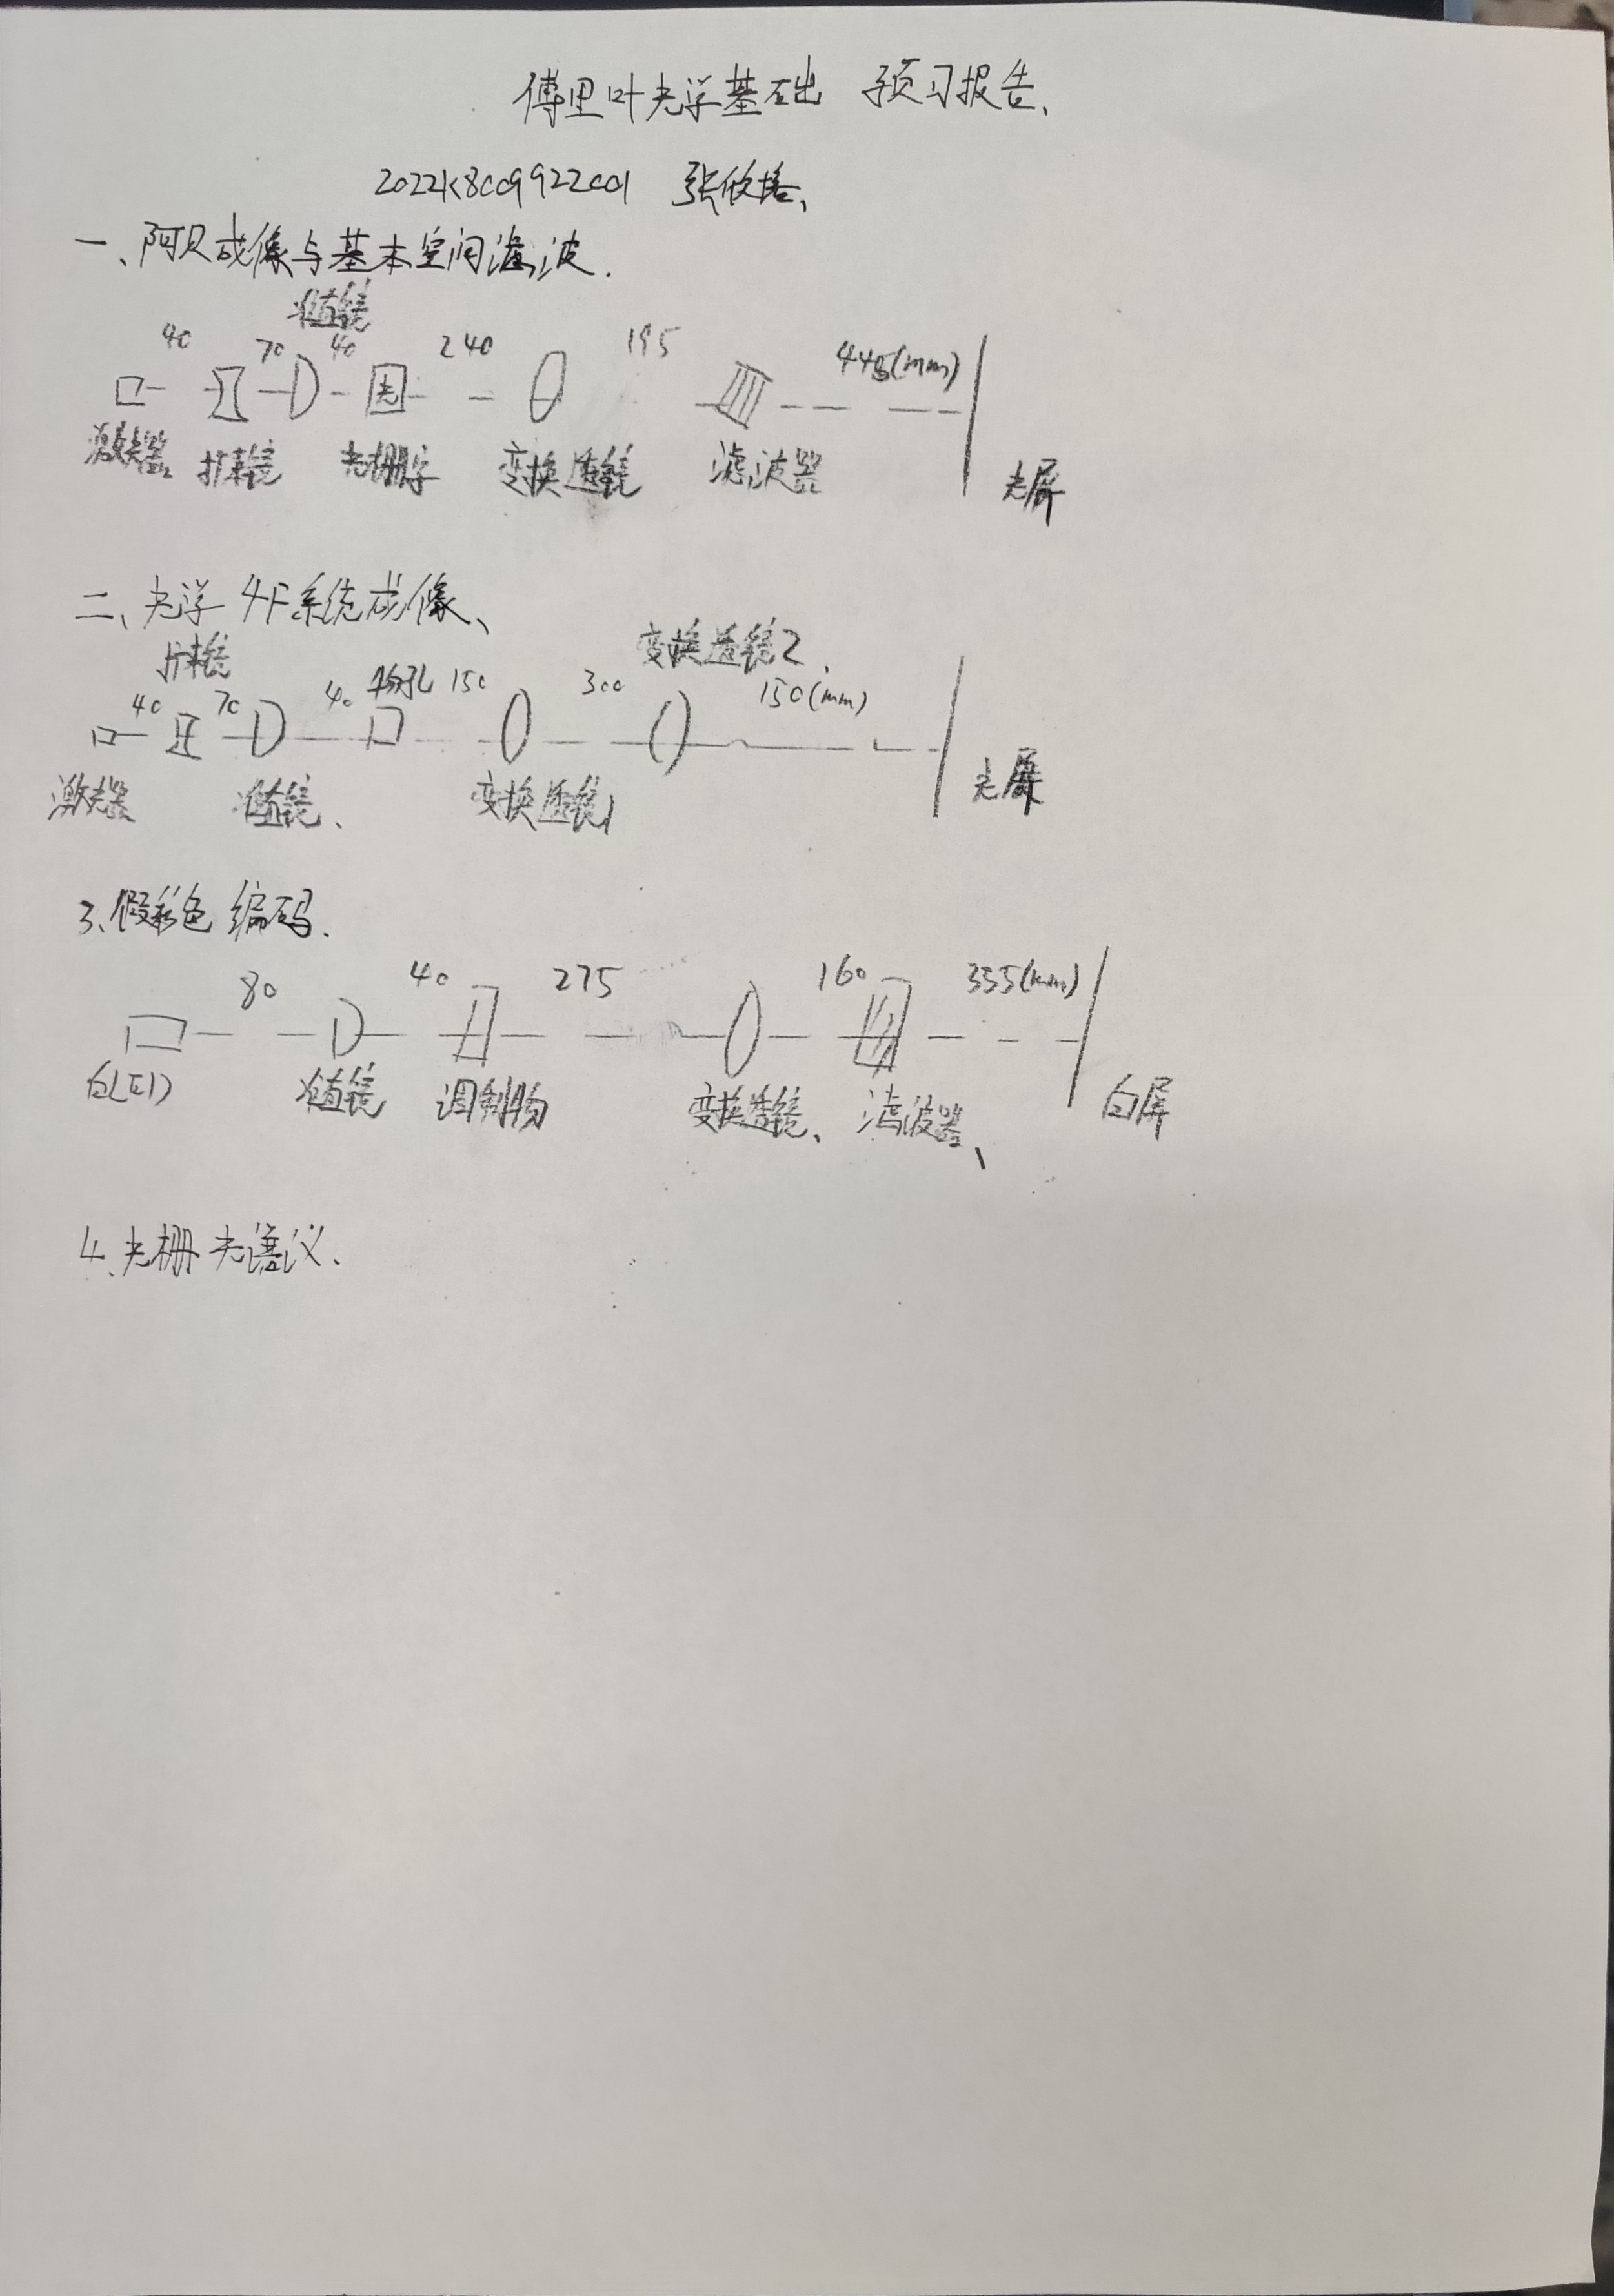 傅里叶光学基础 预习报告、
2022K8009922001 张
一、阿贝成像与基本空间滤波.
准直镜
40 70 40 240 195 445(mm)
光
激光器 扩束镜 光栅字 变换透镜 滤波器 光屏
二、光学4F系统成像、
扩束镜 变换透镜2、
40 70 40 物孔 150 300 150(mm)
激光器 准直镜、 变换透镜1 光屏
3、假彩色编码.
80 40 275 160 335(mm)
白LED 准直镜 调制物 变换透镜、滤波器、 白屏
4、光栅光谱仪、